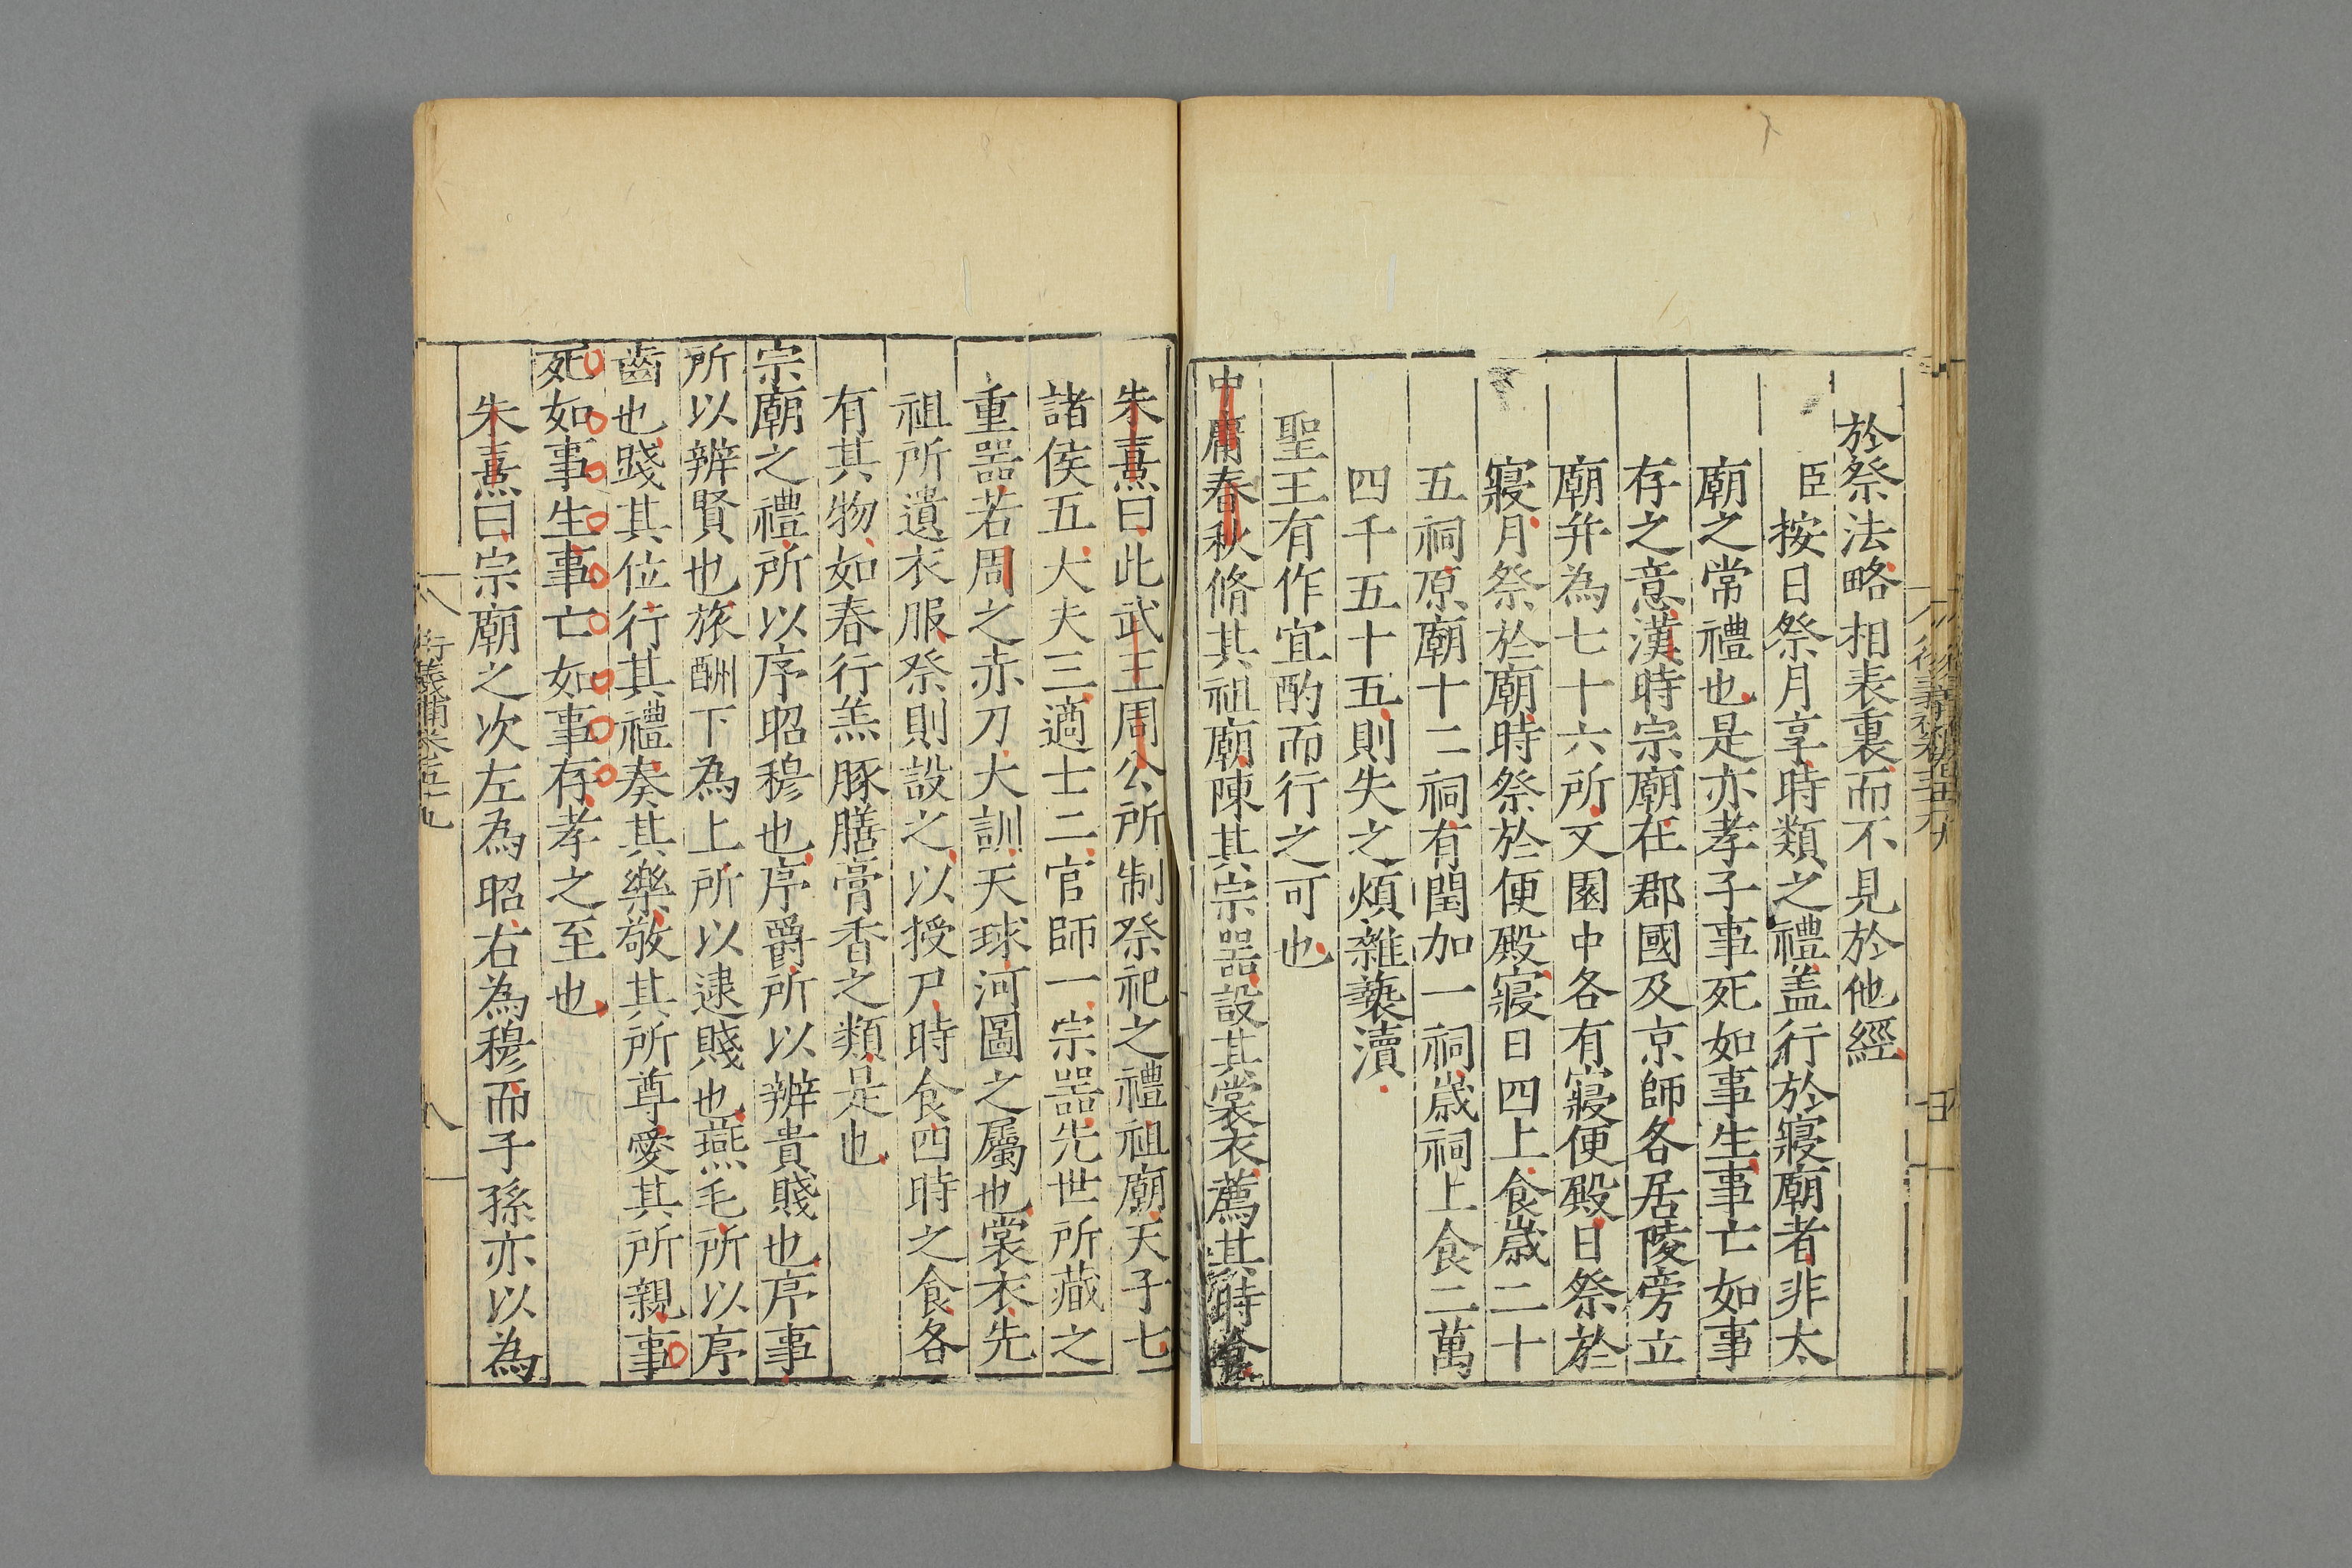 於祭法略相表裏而不見於他經
臣按日祭月享時類之禮盖行於寢廟者非太
廟之常禮也是亦孝子事死如事生事亡如事
存之意漢時宗廟在郡國及京師各居陵旁立
廟并為七十六所又園中各有寢便殿日祭於
寢月祭於廟時祭於便殿寢日四上食歲二十
五祠原廟十二祠有閏加一祠歲祠上食二萬
四千五十五則失之煩雜褻瀆
聖王有作宜酌而行之可也
中庸春秋脩其祖廟陳其宗器設其裳衣薦其時食
朱熹曰此武王周公所制祭祀之禮祖廟天子七
諸侯五大夫三適士二官師一宗器先世所藏之
重器若周之赤刀大訓天球河圖之屬也裳衣先
祖所遺衣服祭則設之以授尸時食四時之食各
有其物如春行羔豚膳膏香之類是也
宗廟之禮所以序昭穆也序爵所以辨貴賤也序事
所以辨賢也旅酬下為上所以逮賤也燕毛所以序
齒也踐其位行其禮奏其樂敬其所尊愛其所親事
死如事生事亡如事存孝之至也
朱熹曰宗廟之次左為昭右為穆而子孫亦以為
衍義補卷五十九
八